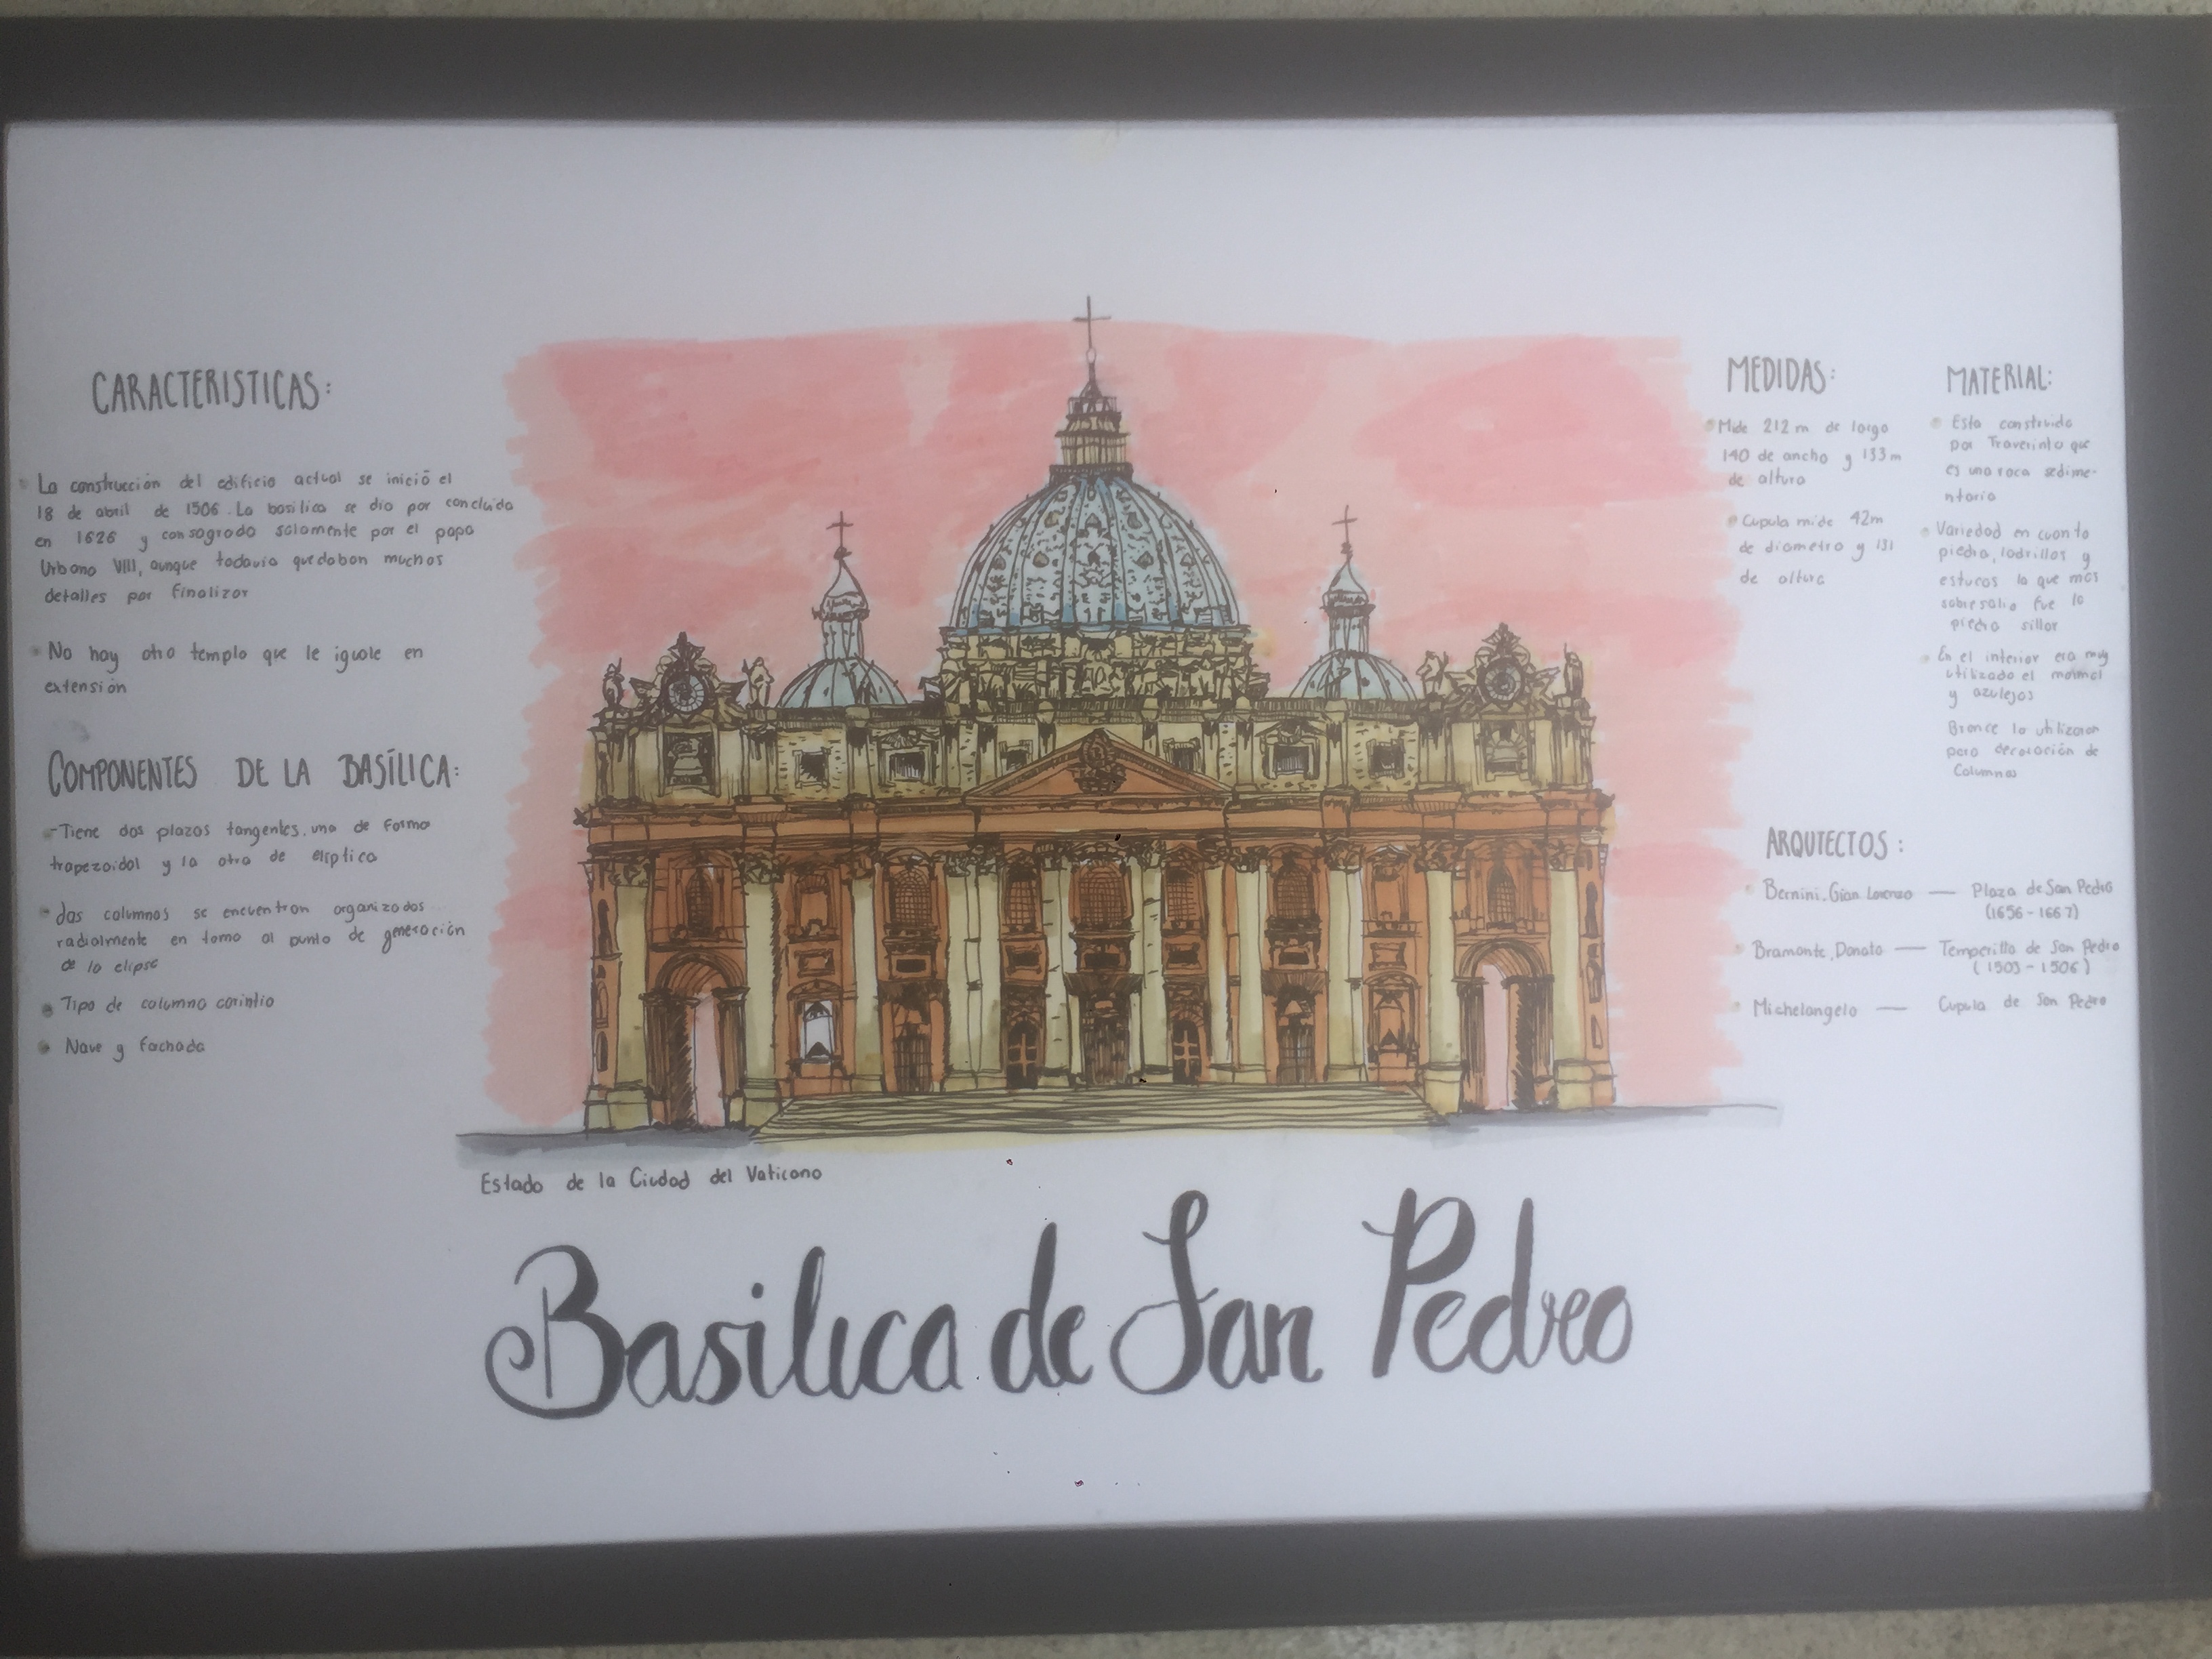 CARACTERISTICAS:
La construcción del edificio actual se inició el
18 de abril de 1506. La basilica se dio por concluida
en 1626 y consagrado solamente por el papa
Urbano VIII, aunque todavia quedaban muchos
detalles por finalizar
No hay otro templo que le iguale en
extensión
COMPONENTES DE LA BASÍLICA:
-Tiene dos plazas tangentes, una de forma
trapezoidal y la otra de eliptica
las columnas se encuentran organizadas
radialmente en torno al punto de generación
de la elipse
Tipo de columna corintio
Nave y fachada
MEDIDAS:
Mide 212 m de largo
140 de ancho y 133 m
de altura
Cupula mide 42m
de diametro y 131
de altura
MATERIAL:
Esta construida
por Traverinto que
es una roca sedime-
ntaria
Variedad en cuanto
piedra, ladrillos y
estucos la que mas
sobresalio fue la
piedra sillar
En el interior era muy
utilizado el mármol
y azulejos
Bronce lo utilizaron
para decoración de
Columnas
ARQUITECTOS:
Bernini, Gian Lorenzo — Plaza de San Pedro
(1656-1667)
Bramante, Donato — Temperillo de San Pedro
(1503-1506)
Michelangelo — Cupula de San Pedro
Estado de la Ciudad del Vaticano
Basilica de San Pedro